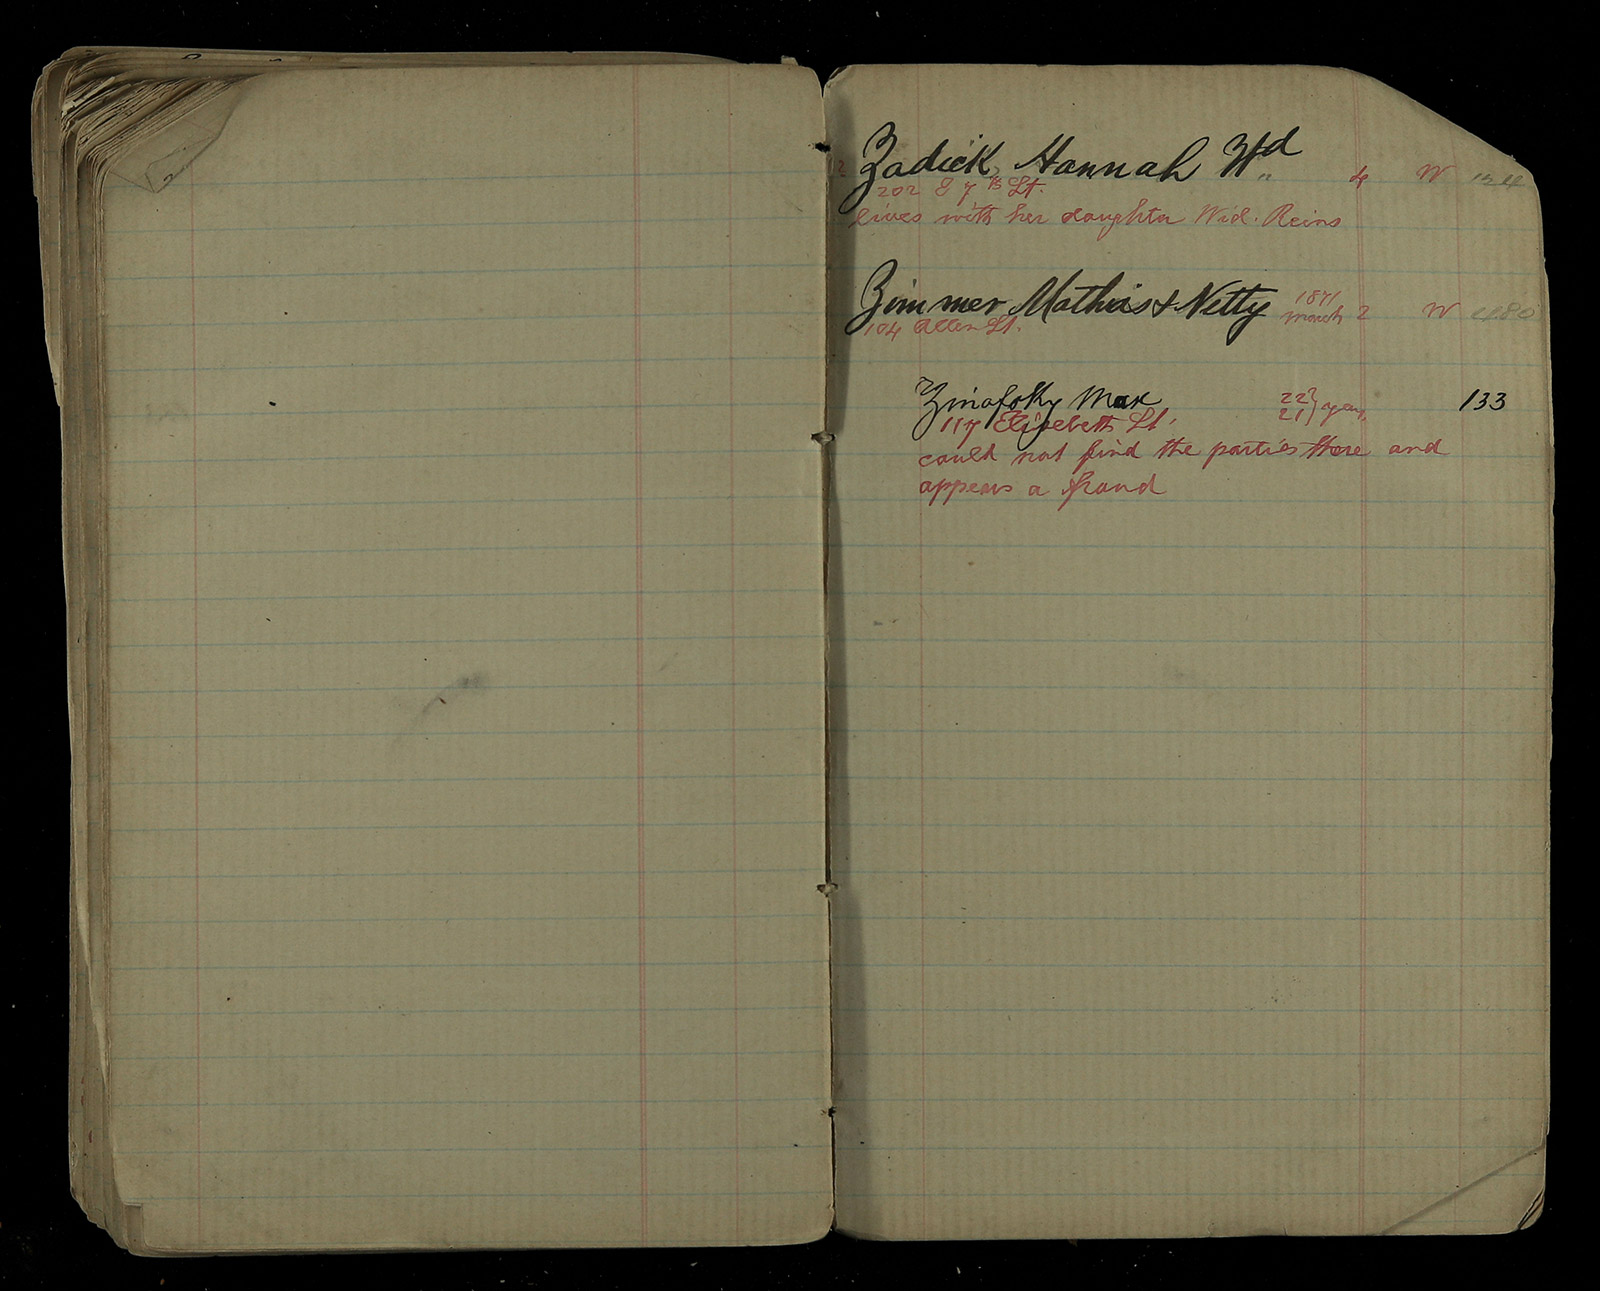 Zadick, Hannah Wd 4 W
202 E 7 th St.
lives with her daughter Wid. Reins
Zimmer Mathias & Netty 1871 March 2 W
104 Allen St.
Max 22 } 21 } years 133
117 Elizebeth St.
could not find the parties there and
appears a fraud